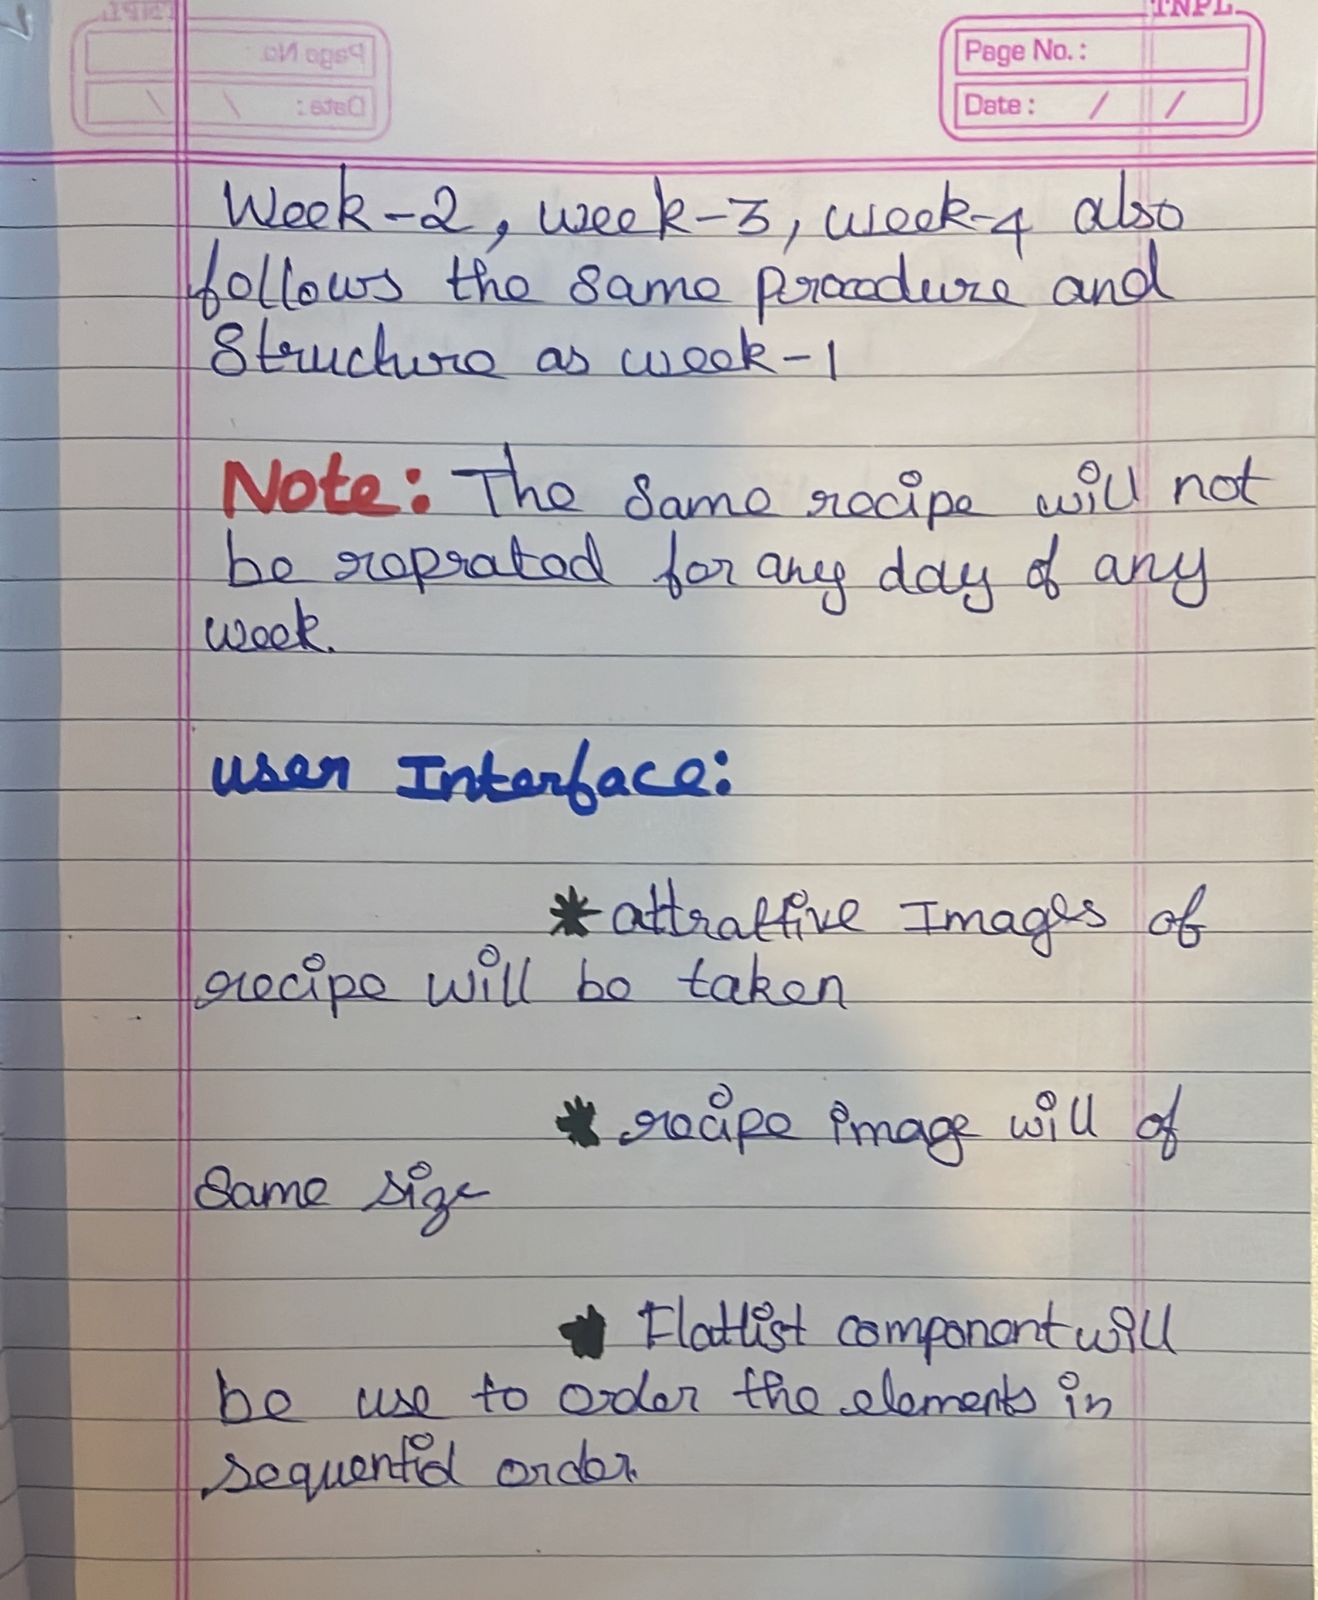 TNPL
Page No.:
Date: / /
Week-2, week-3, week-4 also
follows the same procedure and
Structure as week-1
Note: The same recipe will not
be reprated for any day of any
week.
user Interface:
* attrative Images of
recipe will be taken
* recipe image will of
same size
* Flatlist component will
be use to order the elements in
sequential order.